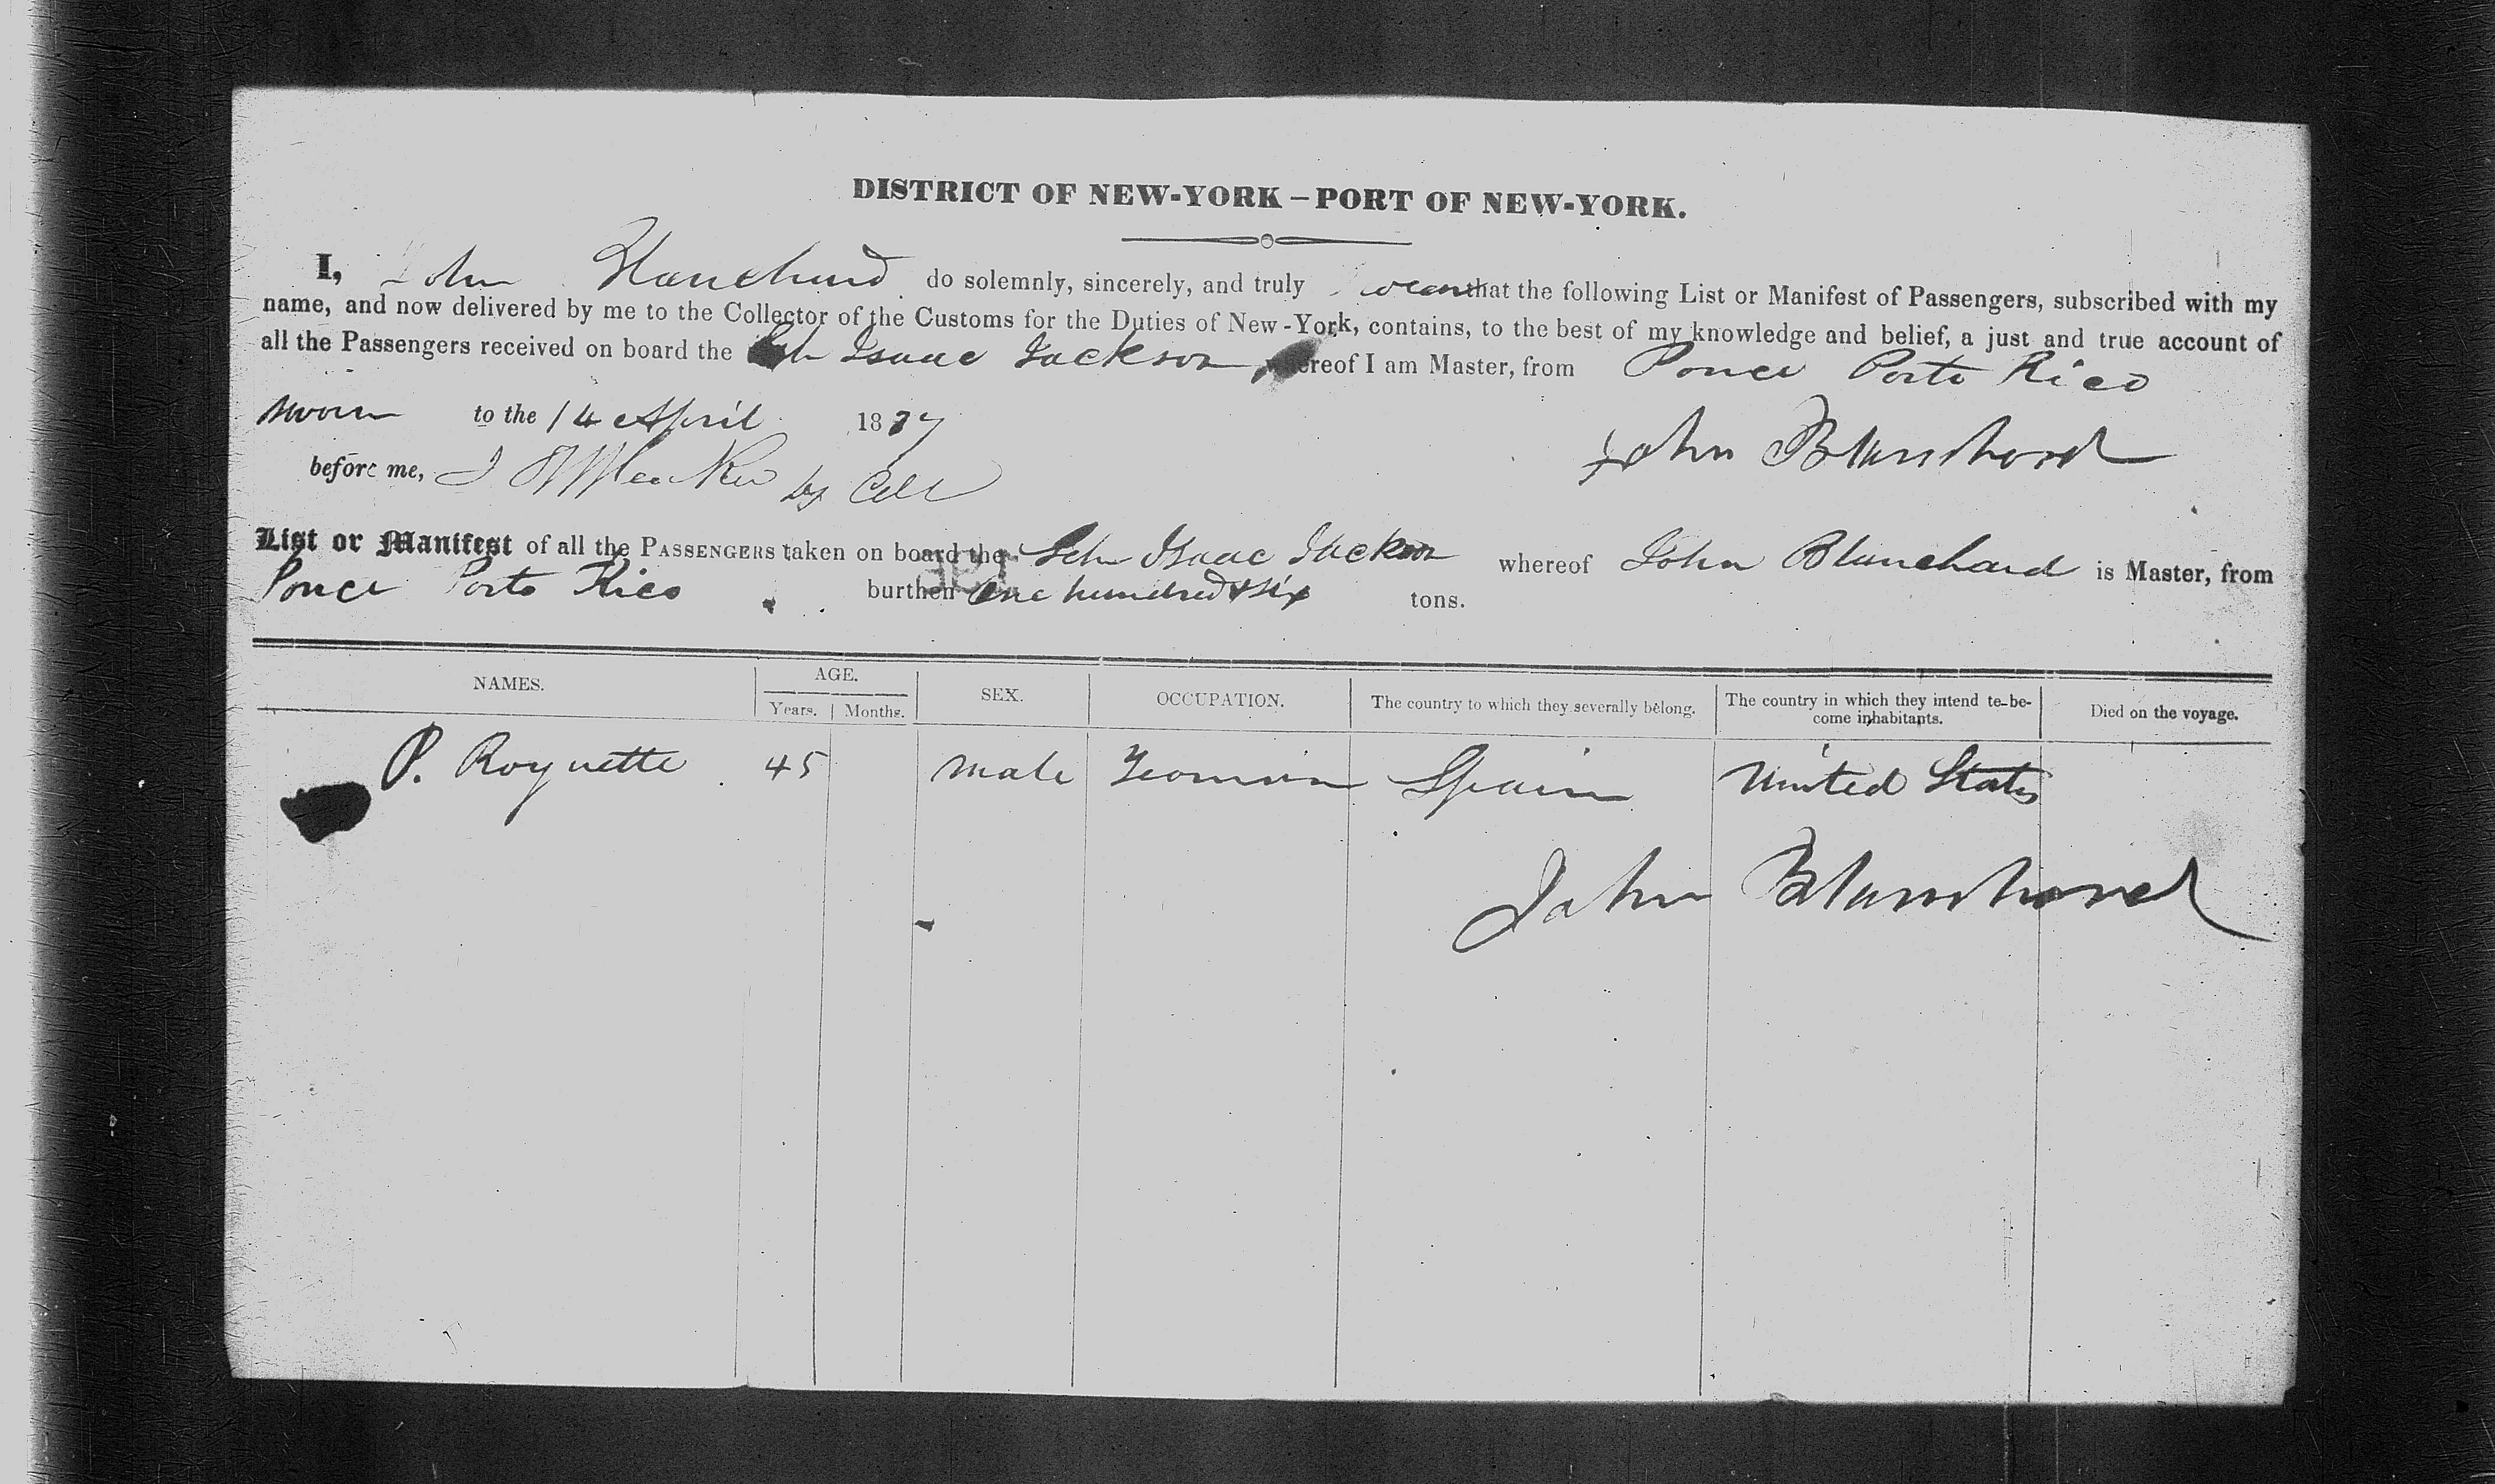 DISTRICT OF NEW-YORK – PORT OF NEW-YORK.
I, John Blanchard do solemnly, sincerely, and truly swear that the following List or Manifest of Passengers, subscribed with my
name, and now delivered by me to the Collector of the Customs for the Duties of New-York, contains, to the best of my knowledge and belief, a just and true account of
all the Passengers received on board the Sch Isaac Jackson whereof I am Master, from Ponce Porto Rico
Sworn to the 14 April 1837
John Blanchard
before me,
List or Manifest of all the PASSENGERS taken on board the Schr Isaac Jackson whereof John Blanchard is Master, from
Ponce Porto Rico burthen One hundred & six tons.
NAMES. AGE. SEX. OCCUPATION. The country to which they severally belong. The country in which they intend to be-
come inhabitants. Died on the voyage.
Years. Months.
P. Roquette 45 male Yeoman Spain United States
John Blanchard